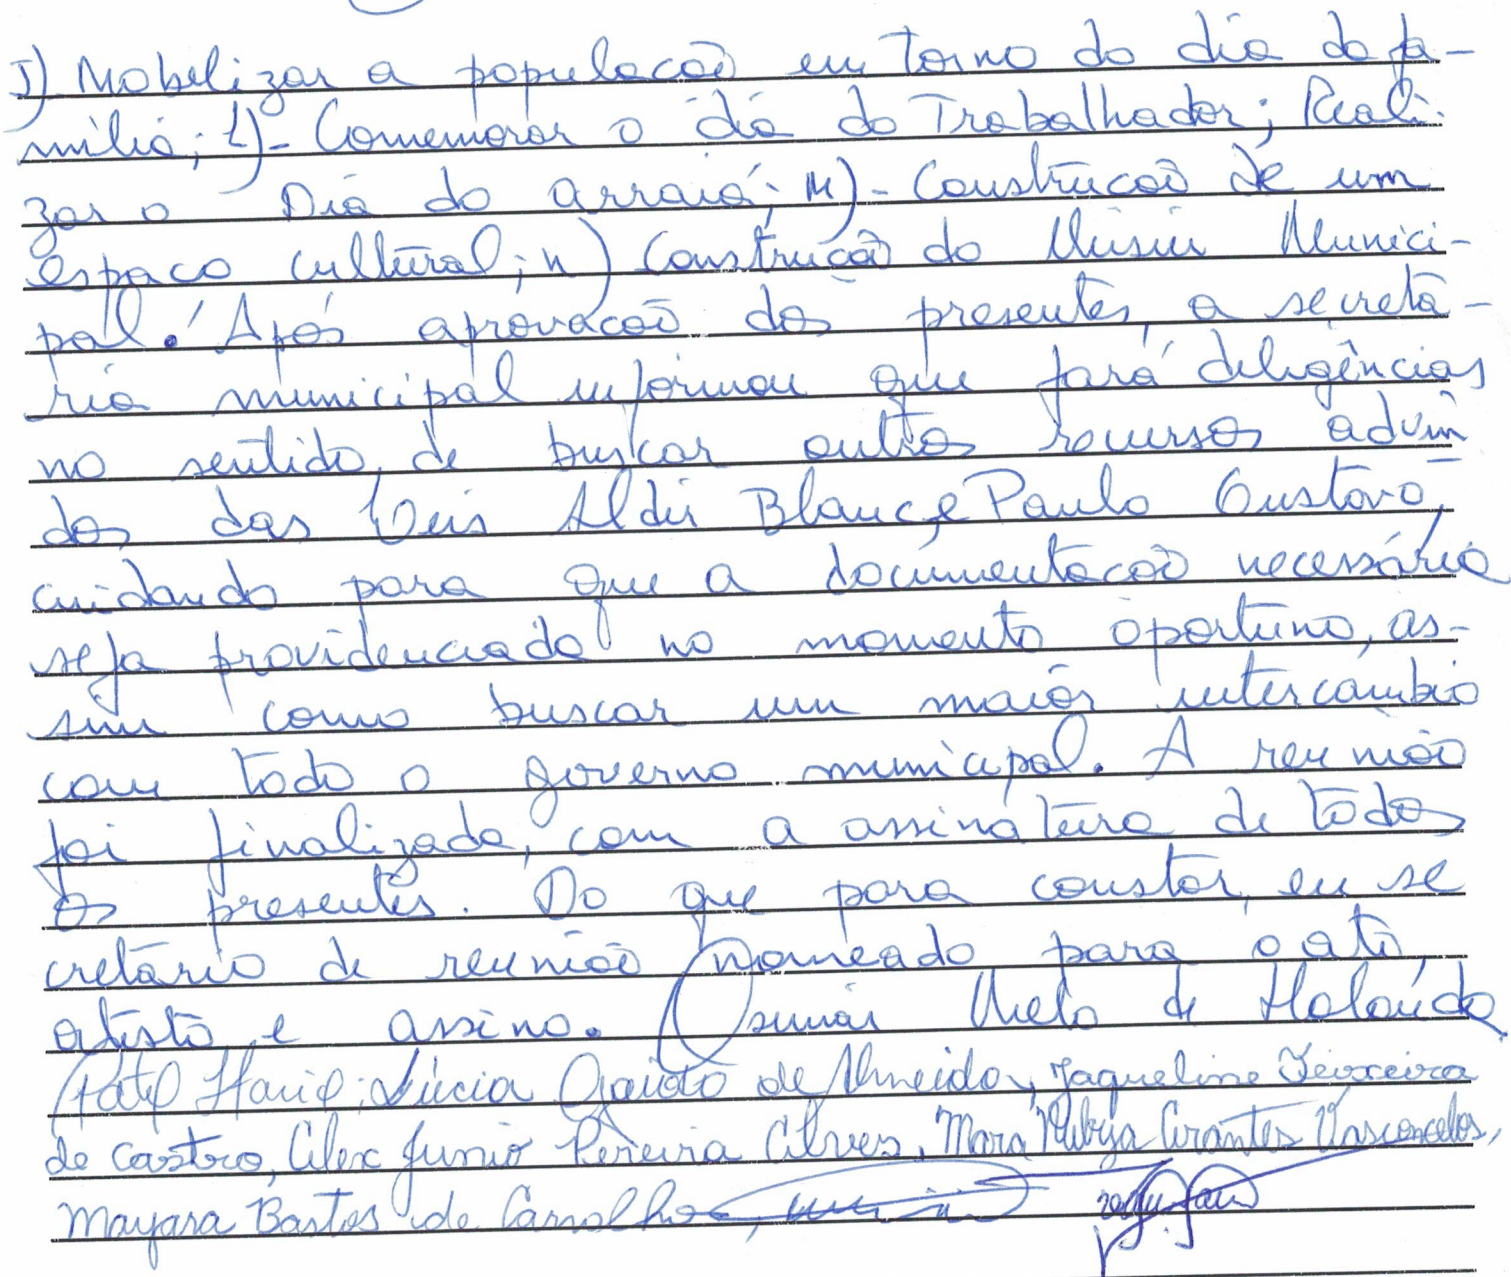 J) Mobilizar a população em torno do dia da fa-
mília; L)- Comemorar o dia do Trabalhador; Reali-
zar o Dia do arraiá; M)- Construção de um
espaço cultural; n) Construção do Museu Munici-
pal. Após aprovação dos presentes, a secretá-
ria municipal informou que fará diligências
no sentido de buscar outros recursos advin
dos das Leis Aldir Blanc e Paulo Gustavo,
cuidando para que a documentação necessária
seja providenciada no momento oportuno, as-
sim como buscar um maior intercâmbio
com todo o governo municipal. A reunião
foi finalizada, com a assinatura de todos
os presentes. Do que para constar, eu se
cretário de reunião nomeado para o ato,
atesto e assino. Osmar Melo de Holanda
Lúcia de Almeida, Jaqueline Teixeira
de Castro, Alex Junio Pereira Alves, Mara Rubya Arantes Vasconcelos,
Mayara Bastos de Carvalho